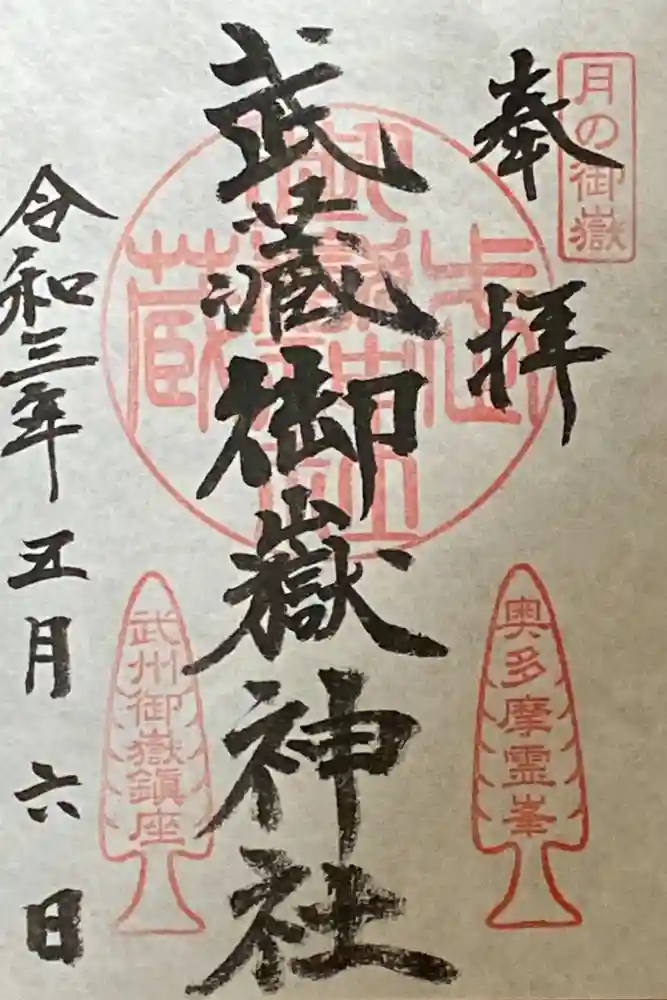 月の御嶽
奉拝
武蔵御嶽神社
令和三年五月六日
奥多摩霊峯
武州御嶽鎮座